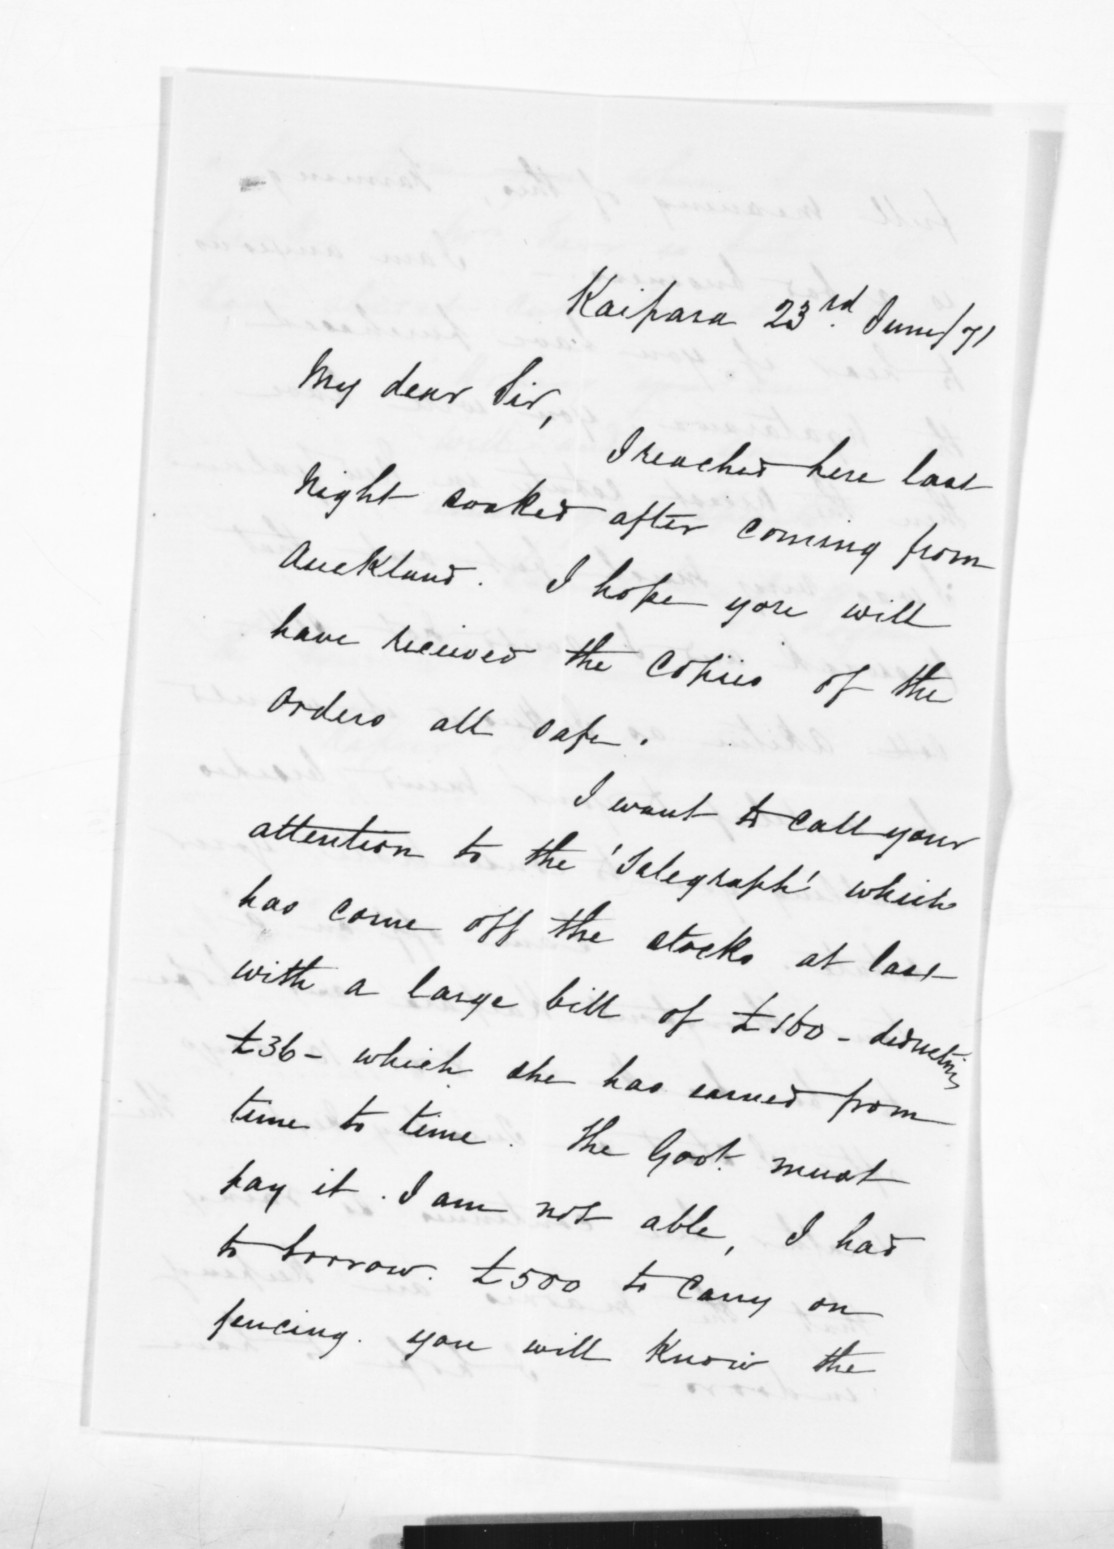 Kaipara 23rd. June/71
My dear Sir,
I reached here last
night soaked after coming from
Auckland. I hope you will
have recieved the copies of the
orders all safe.
I want to call your
attention to the 'Telegraph' which
has come off the stocks at last
with a large bill of £160 - deducting
£36 - which she has earned from
time to time. The Govt. must
pay it. I am not able, I had
to borrow. £500 to carry on
fencing. you will know the